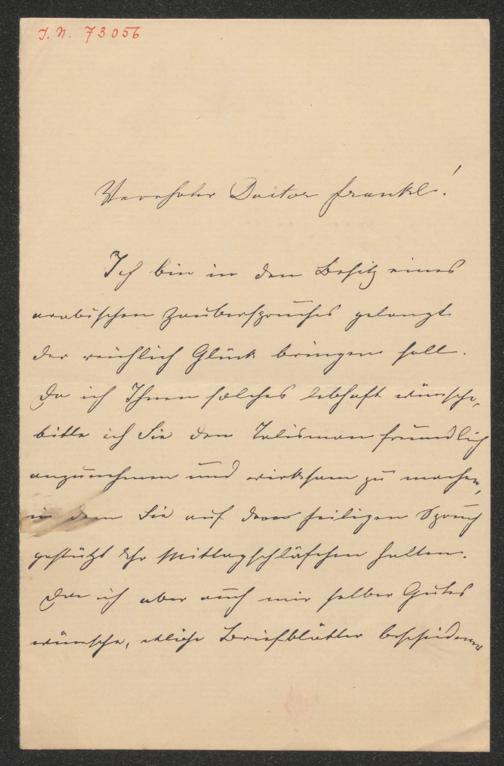 J. N. 73056
Verehrter Doctor Frankl!
Ich bin in den Besitz eines
arabischen Zauberspruches gelangt
der reichlich Glück bringen soll.
Da ich Ihnen solches lebhaft wünsche,
bitte ich Sie den Talisman freundlich
anzunehmen und wirksam zu machen,
in dem Sie auf dem heiligen Spruch
gestützt Ihr Mittagschläfchen halten.
Da ich aber auch mir selber Gutes
wünsche, etliche Briefblätter bescheidenen